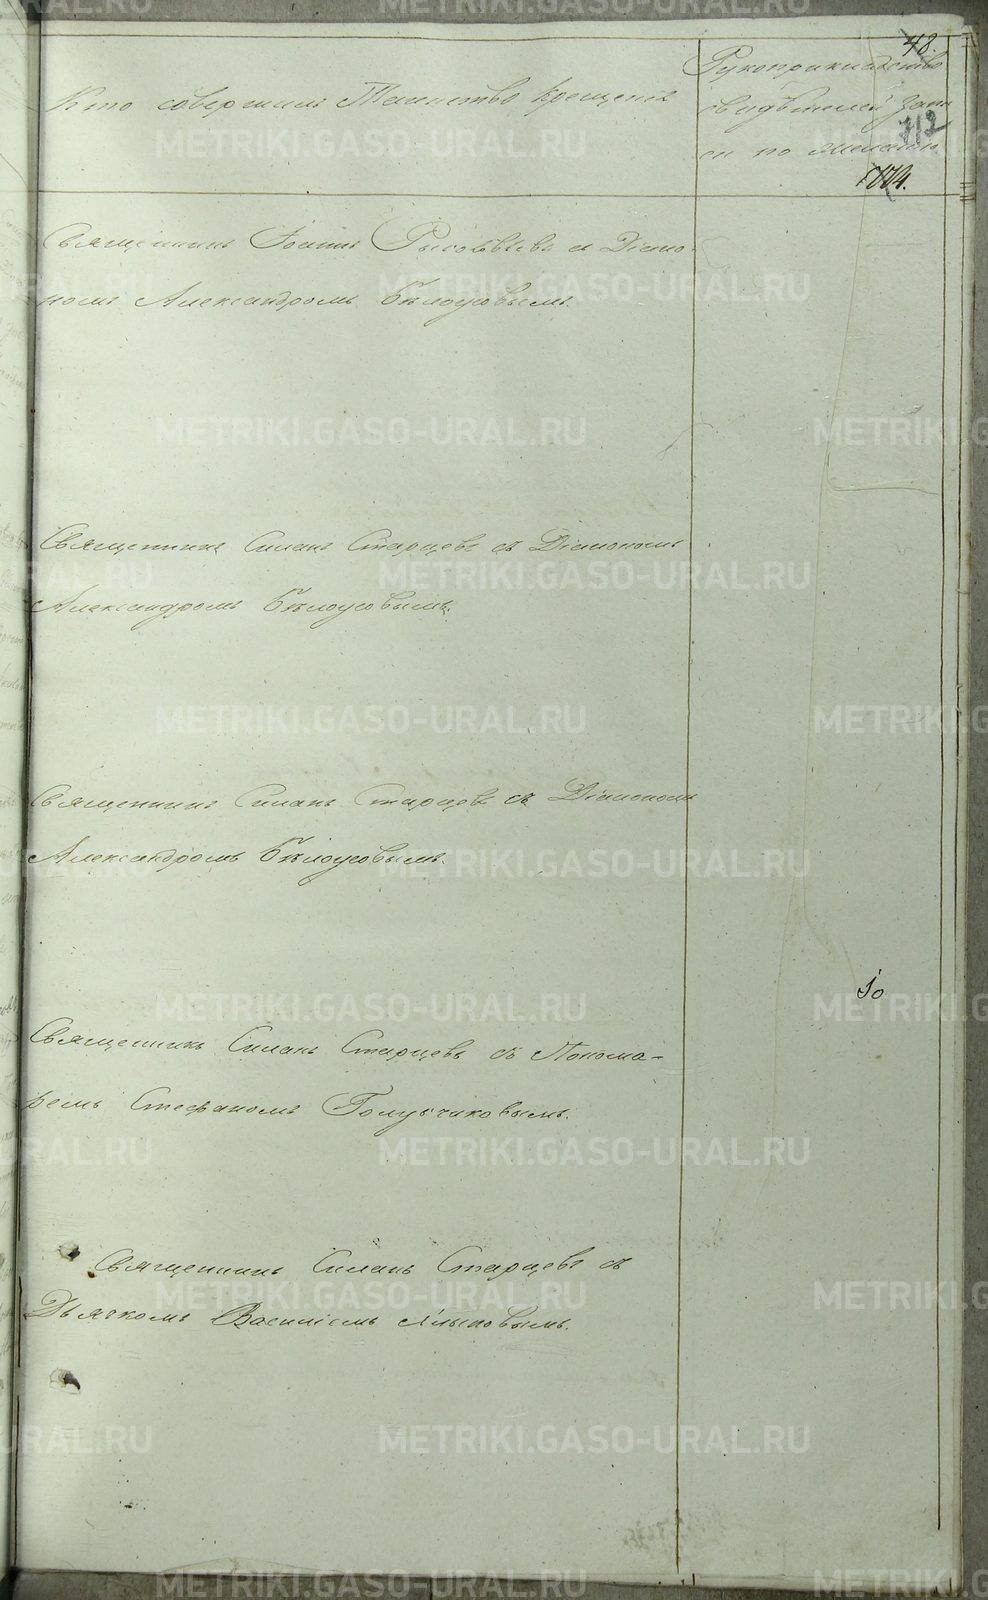 48.
Кто совершилъ Таинство крещенія
Рукоприкладство
свидѣтелей запи
си по желанію
112
Священникъ Іоаннъ съ Діако-
номъ Александромъ Бѣлоусовымъ.
Священникъ Силанъ Старцевъ съ Діакономъ
Александромъ Бѣлоусовымъ.
Священникъ Силанъ Старцевъ съ Діакономъ
Александромъ Бѣлоусовымъ.
10
Священникъ Силанъ Старцевъ съ Понома-
ремъ Стефаномъ Голубчиковымъ.
Священникъ Силанъ Старцевъ съ
Дьячкомъ Василіемъ
METRIKI.GASO-URAL.RU